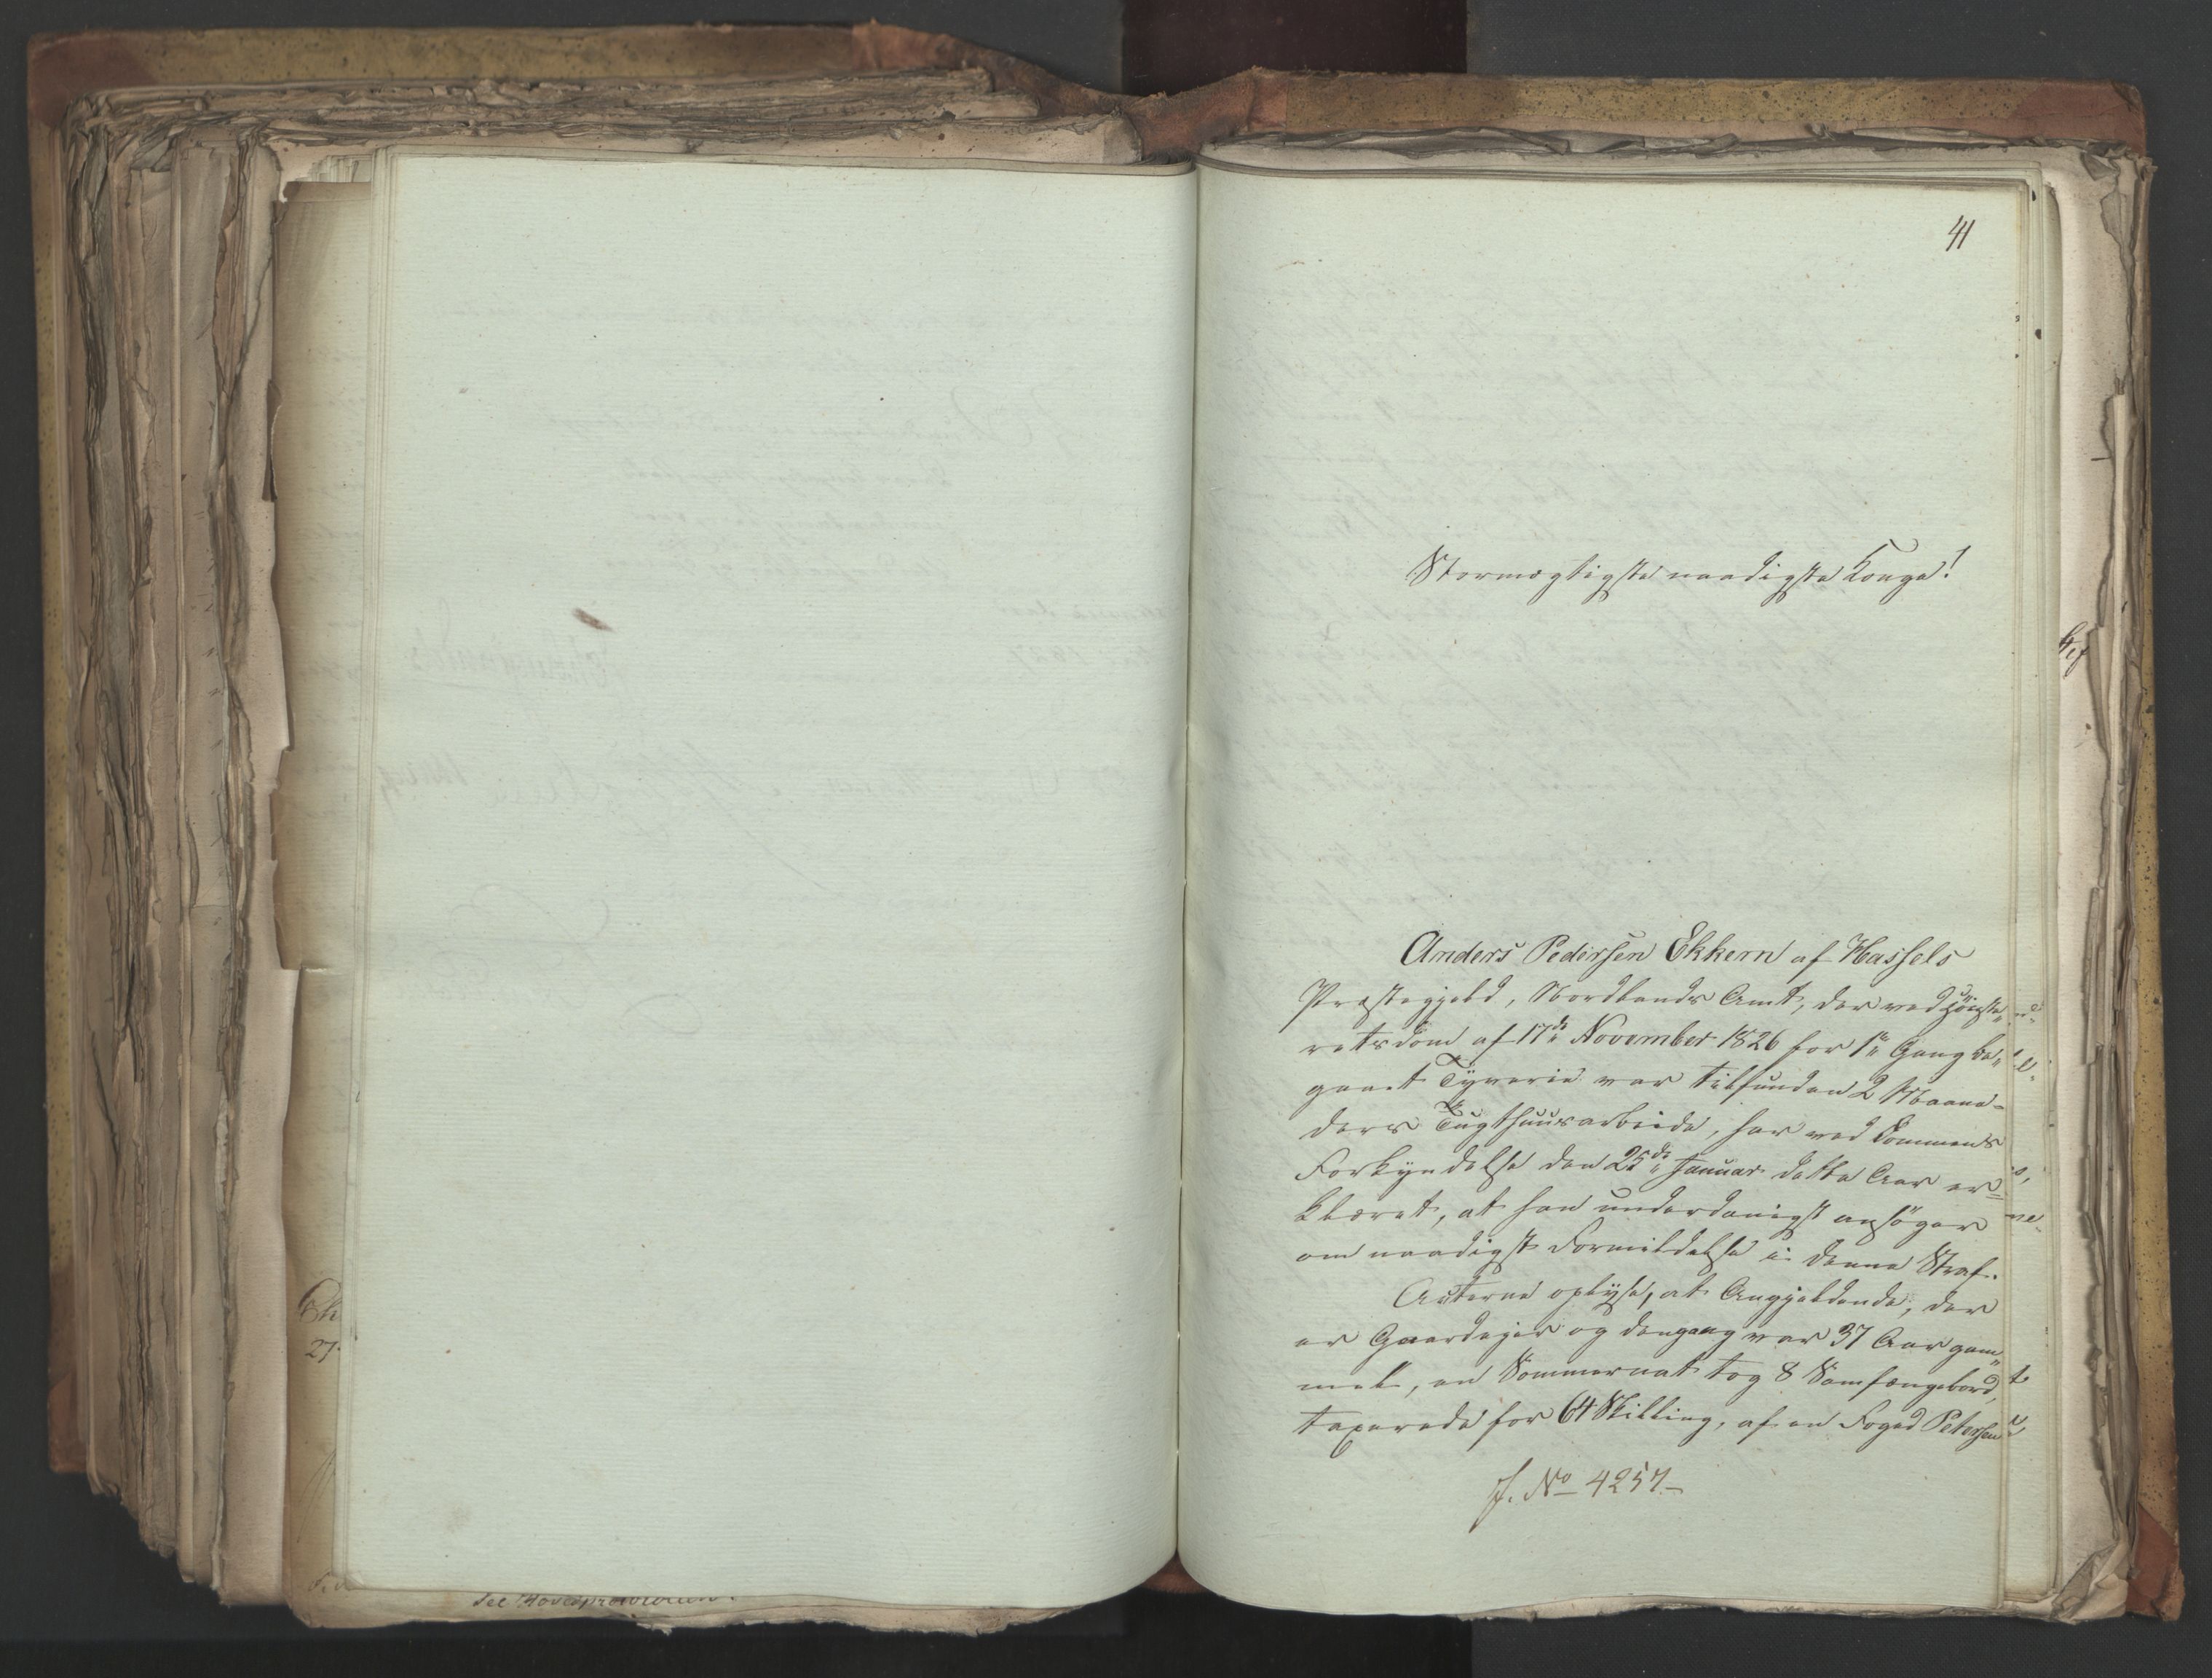 41
Stormægtigste naadigste Konge!
Anders Pedersen Ekkern af Hassels
Præstegjeld, Nordlands Amt, der ved Höieste„
retsdom af 17de November 1826 for 1ste Gang be„
gaaet Tyverie var tilfunden 2 Maane-
ders Tugthuusarbeide, har ved Dommens
Forkyndelse den 25de Januar dette Aar er=
klæret, at han underdanigst ansöger
om naadigst Formildelse i denne Straf.
Acterne oplyse, at Angjeldende, der
er Gaardejer og dengang var 37 Aar gam„
mel, en Sommernat tog 8
taxerede for 64 Skilling, af en Foged Petersen
J. No 4257
See Hovedprotocollen